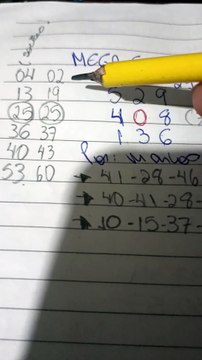 04 02
13 19
25 25
36 37
40 43
53 60
MEGA
529
408
136
Por: marlos
41-28-46
40-41-28-
10-15-37-